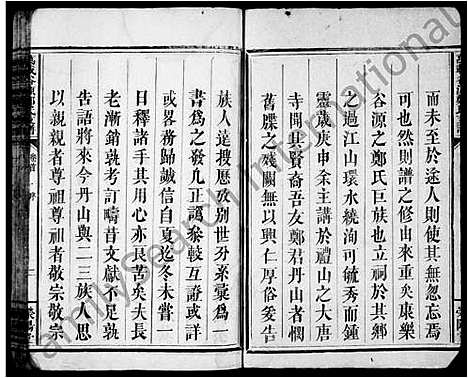 而未至於途人則使其無忽忘焉
可也然則譜之修由來重矣康樂
谷源之鄭氏巨族也立祠於龍雲
之過江山環水繞洵可毓秀而鍾
靈歲庚申余主講於禮山之大唐
寺間與耆吾友鄭君丹山者憫
舊牒之殘闕無以興仁厚俗爰告
族人遠搜歷稽別世分系彙為一
書為之發凡正譌參較互證或詳
或畧務歸誠信自夏迄冬未嘗一
日釋諸手其用心亦良苦矣夫長
老漸銷孰考訂疇昔文獻不足孰
告語將來今丹山與二三族人思
以親親者尊祖尊祖者敬宗敬宗
卷首
序
FamilySearch International